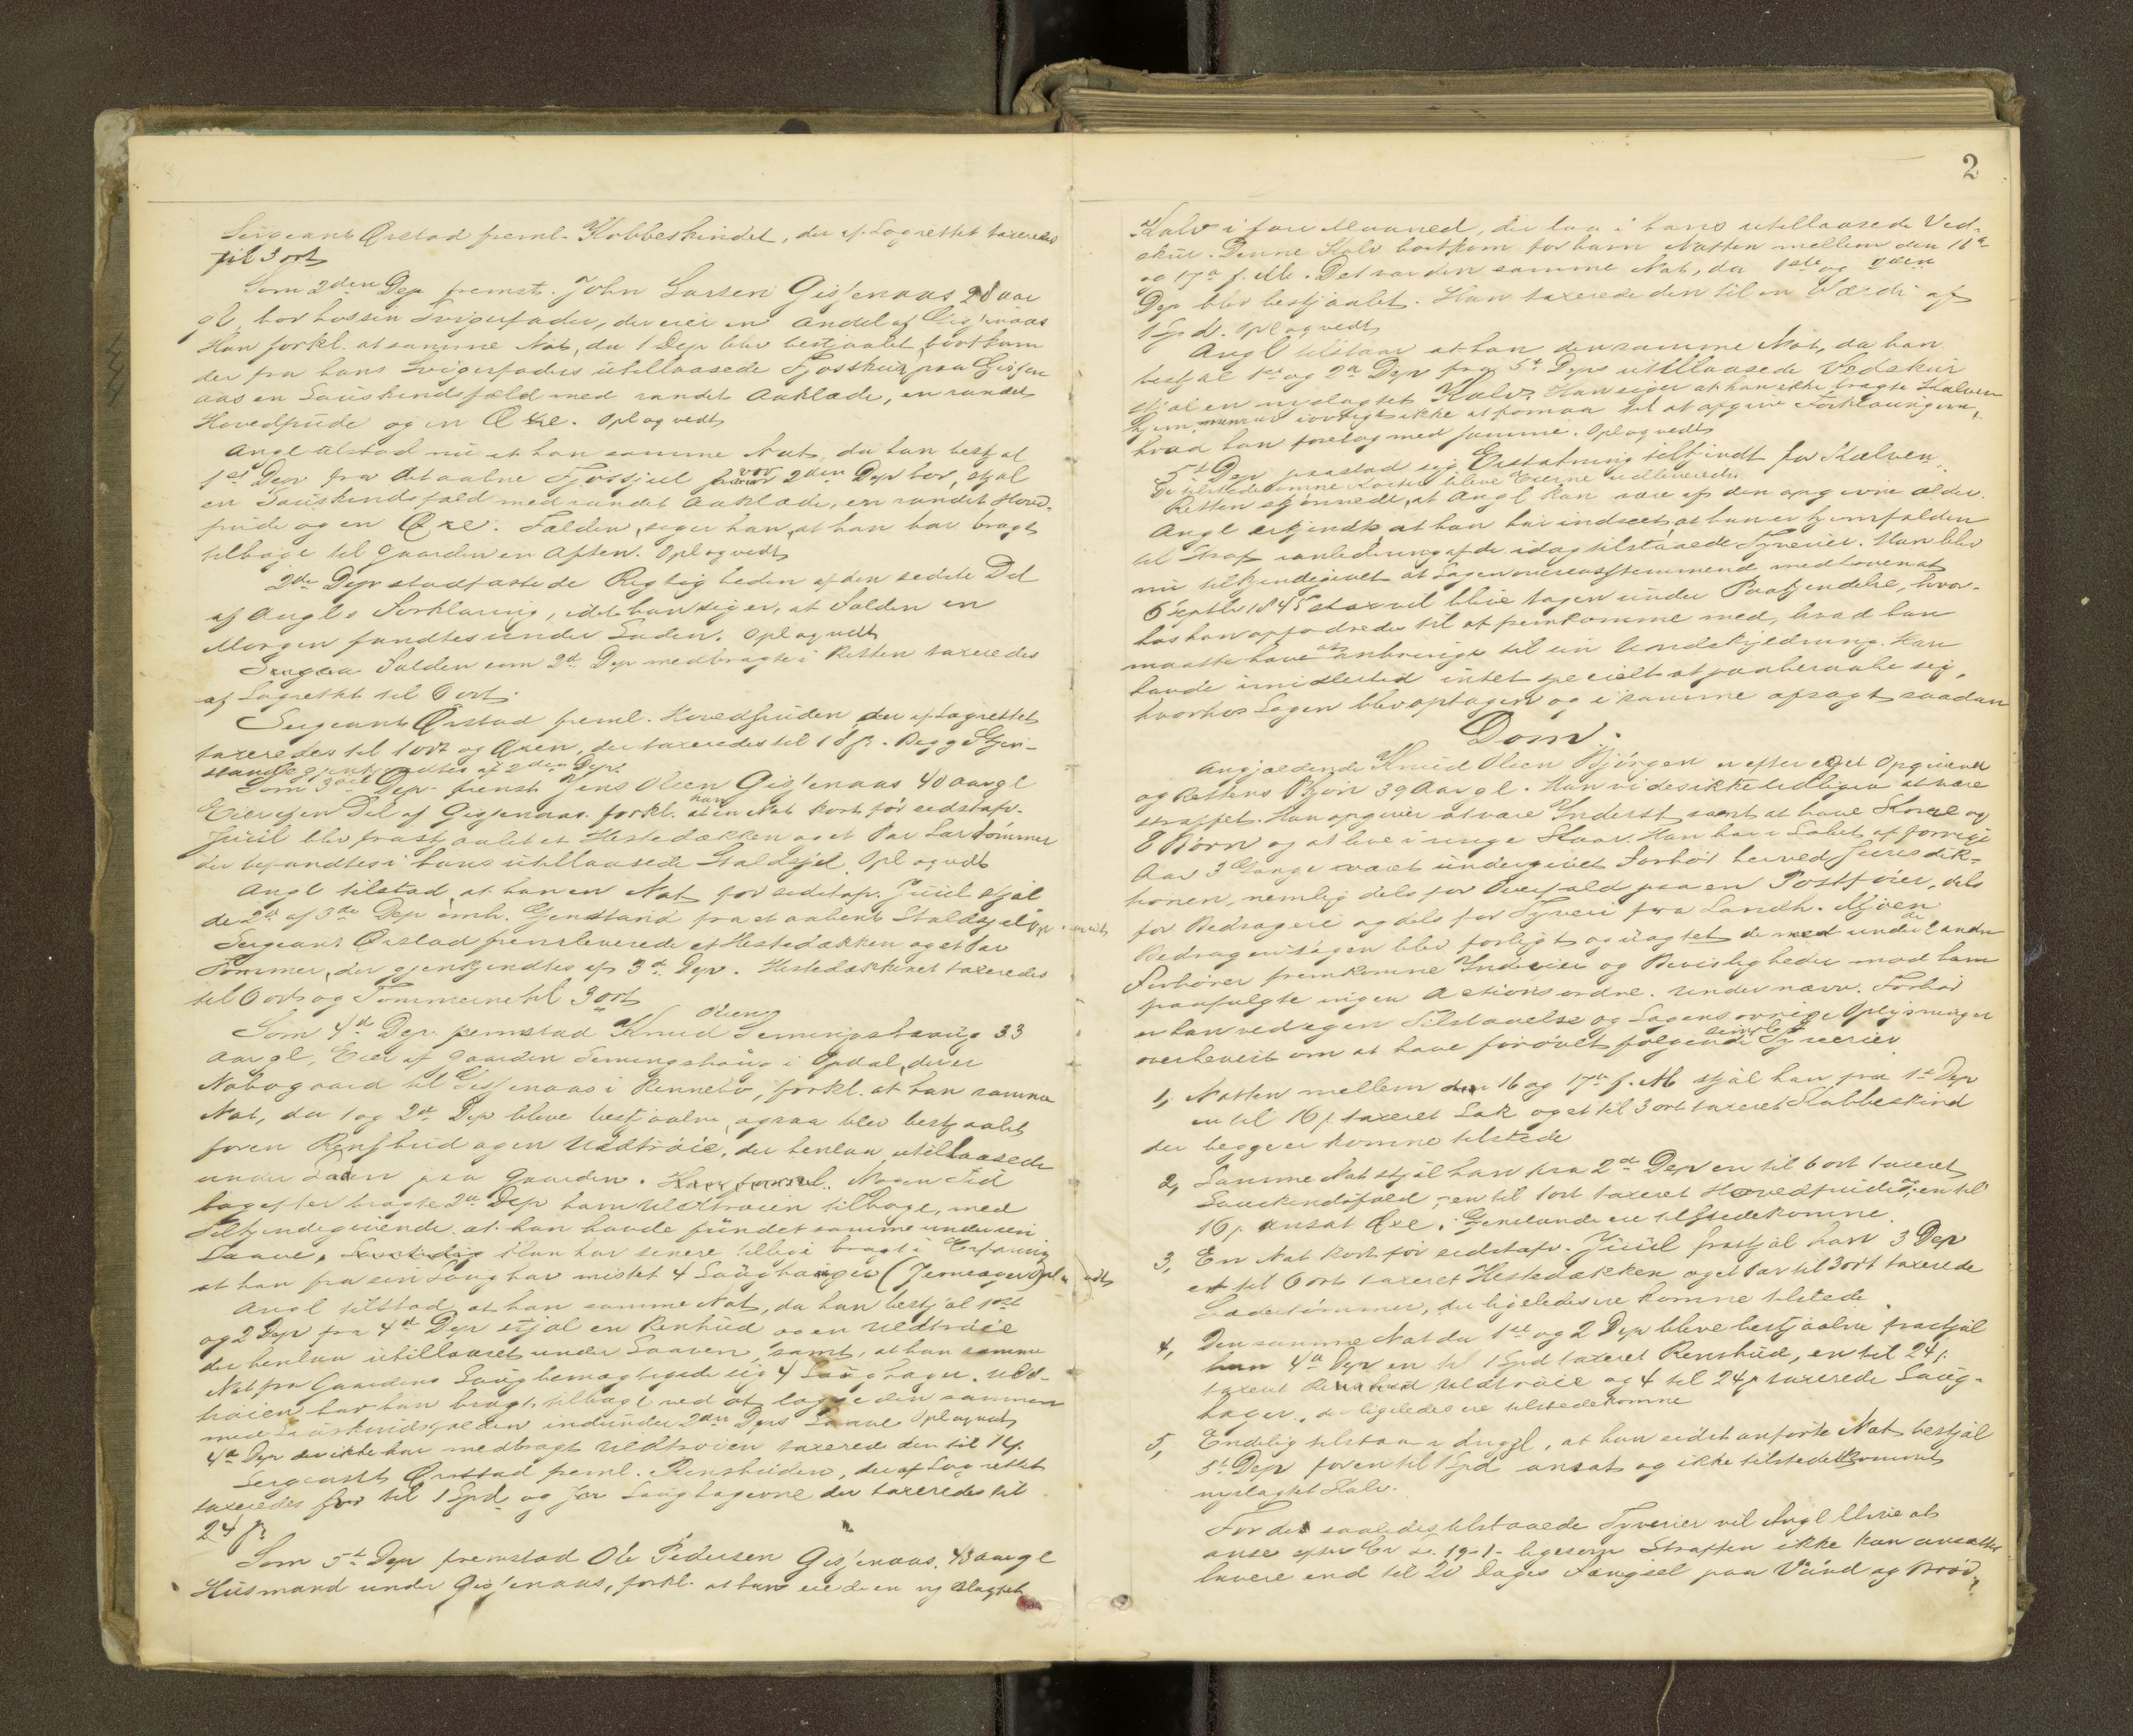 Sergeant Ørstad freml. Kobbeskindet, der af Lagrettet taxeredes
til 3 ort
Som 2den Dep fremst. John Larsen Gisjenaas 28 aar
gl, bor hos sin Svigerfader, der eier en Andel af Gisjenaas
Han forkl. at samme Nat, da 1 Dep blev bestjaalet, bortkom
der fra hans Svigerfaders utillaasede Fjosskur paa Gisjen
aas en Sauskindsfæld med randet Aaklæde, en randet
Hovedpude og en Øxe. Opl og vedt
Angl tilstod nu at han samme Nat, da han bestjal
1st Dep fra det aabne Fjossjul hvor 2den Dep bor, stjal
en Sauskindsfæld med randet Aaklæde, en randet Hoved-
pude og en Øxe. Fælden, siger han, at han har bragt
tilbage til Gaarden en Aften. Opl og vedt
2de Dep stadfæstede Rigtigheden af den sidste Del
af Angls Forklaring, idet han siger, at Fælden en
Morgen fandtes under Laden. Opl og vedt
Fælden som 2d Dep medbragte i Retten taxeredes
af Lagrettet til 6 ort.
Sergeant Ørstad freml. Hovedpuden, der af Lagrettet
taxeredes til 1 ort og Øxen, der taxeredes til 16 ß. Begge Gjen-
stande gjenkjendtes af 2den Dep.
Som 3die Dep fremst Jens Olsen Gisjenaas 40 aar gl
Eier af en Del af Gisjenaas. forkl. at han en Nat kort før sidstafv.
Juul blev frastjaalet et Hestedækken og et Par Lærtømmer
der befandtes i hans utillaasede Staldsjul. Opl og vedt
Angl tilstod, at han en Nat før sidstafv. Juul stjal
de af 3de Dep omh. Gjenstand fra et aabent Staldsjul Opl og vedt
Sergeant Ørstad fremleverede et Hestedækken og et Par
Tømmer, der gjenkjendtes af 3d Dep. Hestedækkenet taxeredes
til 6 ort og Tømmerne til 3 ort
Som 4d Dep. fremstod Knud Olsen Semmingshaug 33
aar gl, Eier af Gaarden Semingshaug i Opdal, der er
Nabogaard til Gisjenaas i Rennebo, forkl. at han samme
Nat, da 1 og 2d Dep bleve bestjaalne, ogsaa blev bestjaalet
for en Renshud og en Uldtrøie, der henlaa utillaasede
under Laaven paa Gaarden. Nogen Tid
bagefter bragte 2d Dep ham Uldtrøien tilbage, med
Tilkjendegivende at han havde fundet samme under sin
Laave. Han har senere tillige bragt i Erfaring
at han fra sin Saug har mistet 4 Saughager (Jernhager) Opl og vedt
Angl tilstod at han samme Nat, da han bestjal 1ste
og 2 Dep fra 4d Dep stjal en Renhud og en Uldtrøie
der henlaa utillaaset under Laaven, samt, at han samme
Nat fra Gaardens Saug bemægtigede sig 4 Saughager. Uld-
trøien har han bragt tilbage ved at lægge den sammen
med Sauskindsfælden indunder 2den Deps Laave Opl og vedt
4d Dep der ikke har medbragt Uldtrøien taxerede den til 24 ß.
Sergeant Ørstad freml. Renshuden, der af Lagrettet
taxeredes for til 1 Spd og for Saughagerne der taxeredes til
24 ß
Som 5t Dep fremstod Ole Pedersen Gisjenaas. 48 aar gl
Husmand under Gisjenaas, forkl. at han eiede en nyslagtet
2
Kalv i forr. Maaned, der laa i hans utillaasede Ved-
skur. Denne Kalv bortkom for ham Natten mellem den 16d
og 17d f. M. Det var den samme Nat, da 1ste og 2den
Dep blev bestjaalet. Han taxerede den til en Værdi af
1 Spd. Opl og vedt
Angl tilstaar at han den samme Nat, da han
bestjal 1st og 2d Dep fra 5t Deps utillaasede Vedskur
stjal en nyslagtet Kalv. Han siger at han ikke bragte Kalven
hjem, men at iøvrigt ikke at formaa til at afgive Forklaring om,
hvad han foretog med samme. Opl og vedt
5t Dep paastod sig Erstatning tilkjendt for Kalven.
De tilstedekomne Koster bleve Eierne udleverede
Retten skjønnede, at Angl kan være af den opgivne Alder.
Angl erkjendte at han har indseet, at han er hjemfalden
til Straf i anledning af de idag tilstaaede Tyverier. Han blev
nu tilkjendegivet at Sagen overensstemmende med Loven at
6 Septbr 1845 strax vil blive tagen under Paakjendelse, hvor-
hos han opfodredes til at fremkomme med, hvad han
maatte have at anbringe til sin Undskyldning. Han
havde imidlertid intet specielt at paaberaabe sig,
hvorhos Sagen blev optagen og i samme afsagt saadan
Dom.
Angjældende Knud Olsen Bjørgen er efter eget Opgivende
og Rettens Skjøn 39 Aar gl. Han vides ikke tidligere at være
straffet. Han opgiver at være Inderst samt at have Kone og
8 Børn og at leve i ringe Kaar. Han har i Løbet af forrige
Aar 3 Gange været undergivet Forhør herved Jurisdik-
tionen, nemlig dels for Overfald paa en Postfører, dels
for Bedrageri og dels for Tyveri fra Landh. Mjøen
Bedragerisagen blev forligt og uagtet de med under de 2 andre
Forhører fremkomne Indicier og Bevisligheder mod ham
paafulgte ingen Actionsordre. Under nærv. Forhør
er han ved egen Tilstaaelse og Sagens øvrige Oplysninger
overbevist om at have forøvet følgende simple Tyverier
1, Natten mellem den 16 og 17de f. M. stjal han fra 1st Dep
en til 16 ß taxeret Sæk og et til 3 ort taxeret Kobbeskind
der begge er komne tilstede
2, Samme Nat stjal han fra 2d Dep en til 6 ort taxeret
Sauskindsfæld, en til 1 ort taxeret Hovedpude, en til
16 ß ansat Øxe. Gjenstande ere tilstedekomne.
3, En Nat kort før sidstafv. Juul frastjal han 3 Dep
et til 6 ort taxeret Hestedækken og et Par til 3 ort taxerede
Lædertømmer, der ligeledes ere komne tilstede
4, Den samme Nat da 1st og 2 Dep bleve bestjaalne frastjal
han 4d Dep en til 1 Spd taxeret Renshud, en til 24 ß.
taxeret Uldtrøie og 4 til 24 ß taxerede Saug-
hager, der ligeledes ere tilstedekomne
5, Endelig tilstaar Angl, at han sidstanførte Nat bestjal
5t Dep for en til 1 Spd ansat og ikke tilstedekommet
nyslagtet Kalv.
For de saaledes tilstaaede Tyverier vil Angl blive at
anse efter Cr L. 19-1- ligesom Straffen ikke kan ansættes
lavere end til 20 Dages Fængsel paa Vand og Brød.